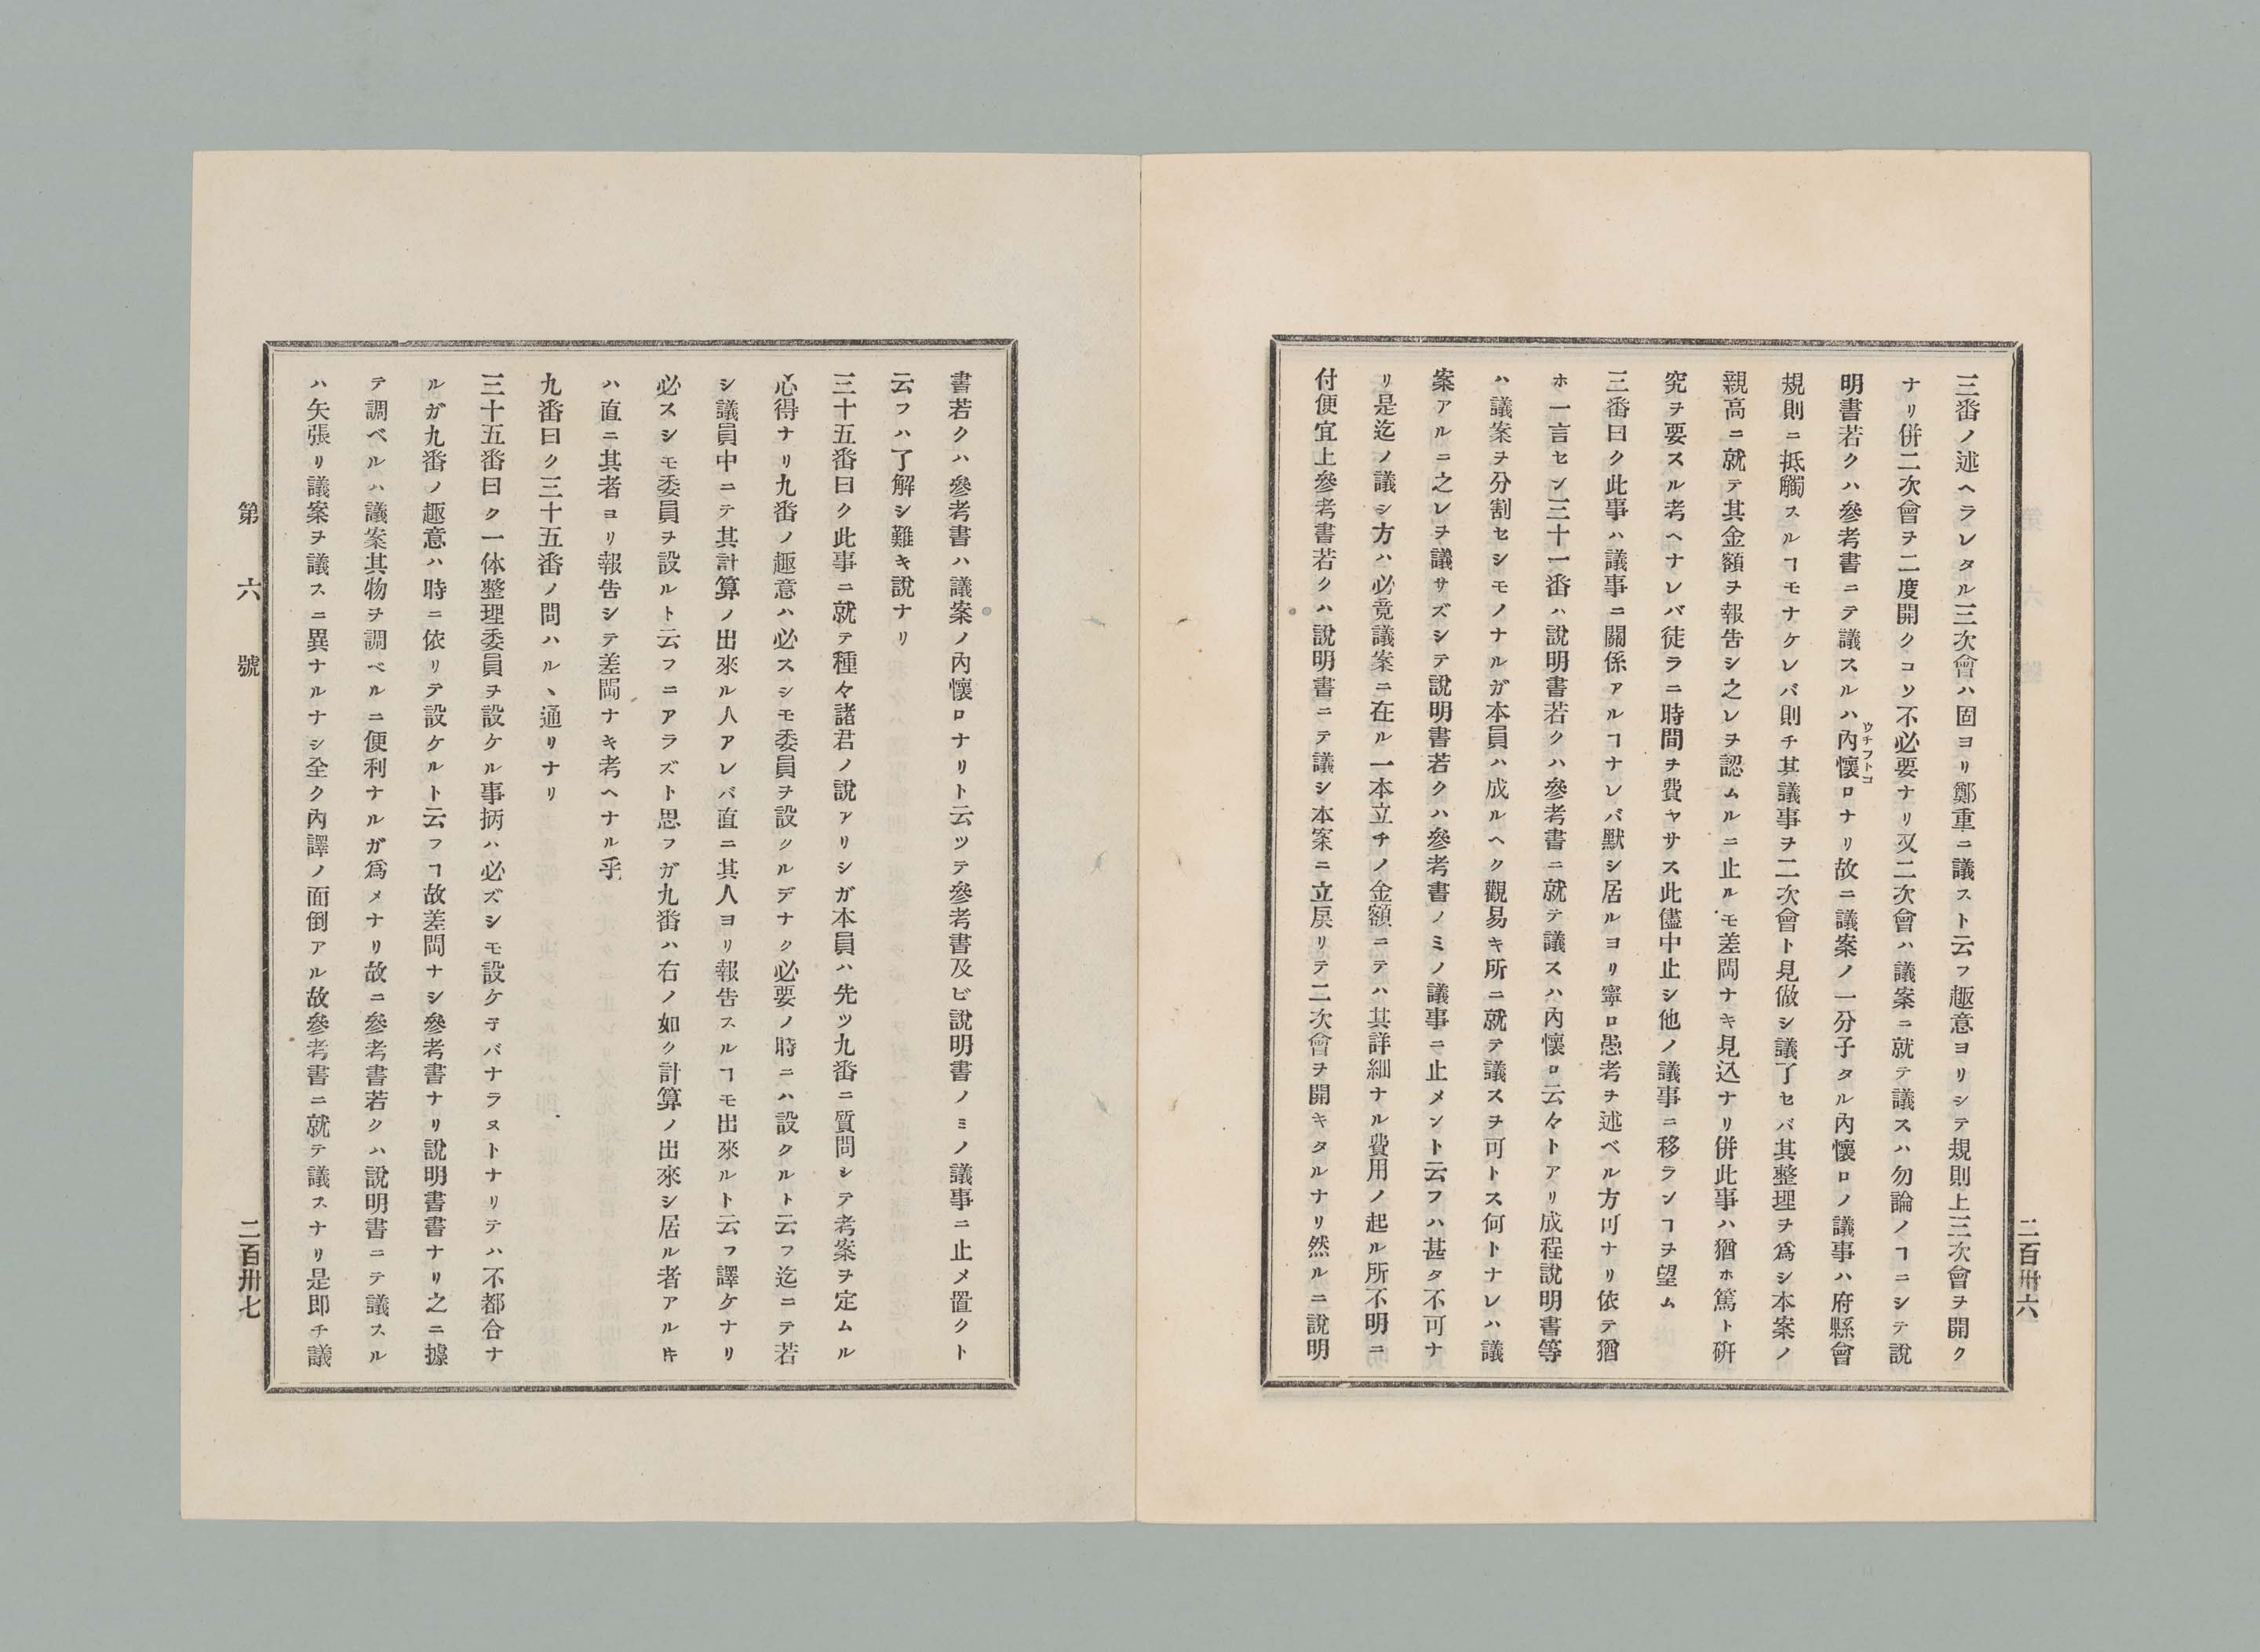 二百卅六
三番ノ述ヘラレタル三次會ハ固ヨリ鄭重ニ議スト云フ趣意ヨリシテ規則上三次會ヲ開ク
ナリ併二次會ヲ二度開クコソ不必要ナリ又二次會ハ議案ニ就テ議スハ勿論ノヿニシテ說
明書若クハ參考書ニテ議スルハ內懷ロナリ故ニ議案ノ一分子タル內懷ロノ議事ハ府縣會
ウチフトコ
規則ニ抵觸スルヿモナケレバ則チ其議事ヲ二次會ト見做シ議了セバ其整理ヲ爲シ本案ノ
親高ニ就テ其金額ヲ報吿シ之レヲ認ムルニ止ルモ差閊ナキ見込ナリ併此事ハ猶ホ篤ト硏
究ヲ要スル考ヘナレバ徒ラニ時間ヲ費ヤサス此儘中止シ他ノ議事ニ移ランヿヲ望ム
三番曰ク此事ハ議事ニ關係アルヿナレバ默シ居ルヨリ寧ロ愚考ヲ述ベル方可ナリ依テ猶
ホ一言セン三十一番ハ說明書若クハ參考書ニ就テ議スハ內懷ロ云々トアリ成程說明書等
ハ議案ヲ分割セシモノナルガ本員ハ成ルヘク觀易キ所ニ就テ議スヲ可トス何トナレハ議
案アルニ之レヲ議サズシテ說明書若クハ參考書ノミノ議事ニ止メント云フハ甚タ不可ナ
リ是迄ノ議シ方ハ必竟議案ニ在ル一本立チノ金額ニテハ其詳細ナル費用ノ起ル所不明ニ
付便宜上參考書若クハ說明書ニテ議シ本案ニ立戾リテ二次會ヲ開キタルナリ然ルニ說明
書若クハ參考書ハ議案ノ內懷ロナリト云ツテ參考書及ビ說明書ノミノ議事ニ止メ置クト
云フハ了解シ難キ說ナリ
三十五番曰ク此事ニ就テ種々諸君ノ說アリシガ本員ハ先ツ九番ニ質問シテ考案ヲ定ムル
心得ナリ九番ノ趣意ハ必スシモ委員ヲ設クルデナク必要ノ時ニハ設クルト云フ迄ニテ若
シ議員中ニテ其計算ノ出來ル人アレバ直ニ其人ヨリ報吿スルヿモ出來ルト云フ譯ケナリ
必スシモ委員ヲ設ルト云フニアラズト思フガ九番ハ右ノ如ク計算ノ出來シ居ル者アルㇳキ
ハ直ニ其者ヨリ報吿シテ差閊ナキ考ヘナル乎
九番曰ク三十五番ノ問ハルヽ通リナリ
三十五番曰ク一体整理委員ヲ設ケル事抦ハ必ズシモ設ケ子バナラヌトナリテハ不都合ナ
ルガ九番ノ趣意ハ時ニ依リテ設ケルト云フヿ故差閊ナシ參考書ナリ說明書書ナリ之ニ據
テ調ベルハ議案其物ヲ調ベルニ便利ナルガ爲メナリ故ニ參考書若クハ說明書ニテ議スル
ハ矢張リ議案ヲ議スニ異ナルナシ全ク內譯ノ面倒アル故參考書ニ就テ議スナリ是即チ議
第六號
二百卅七